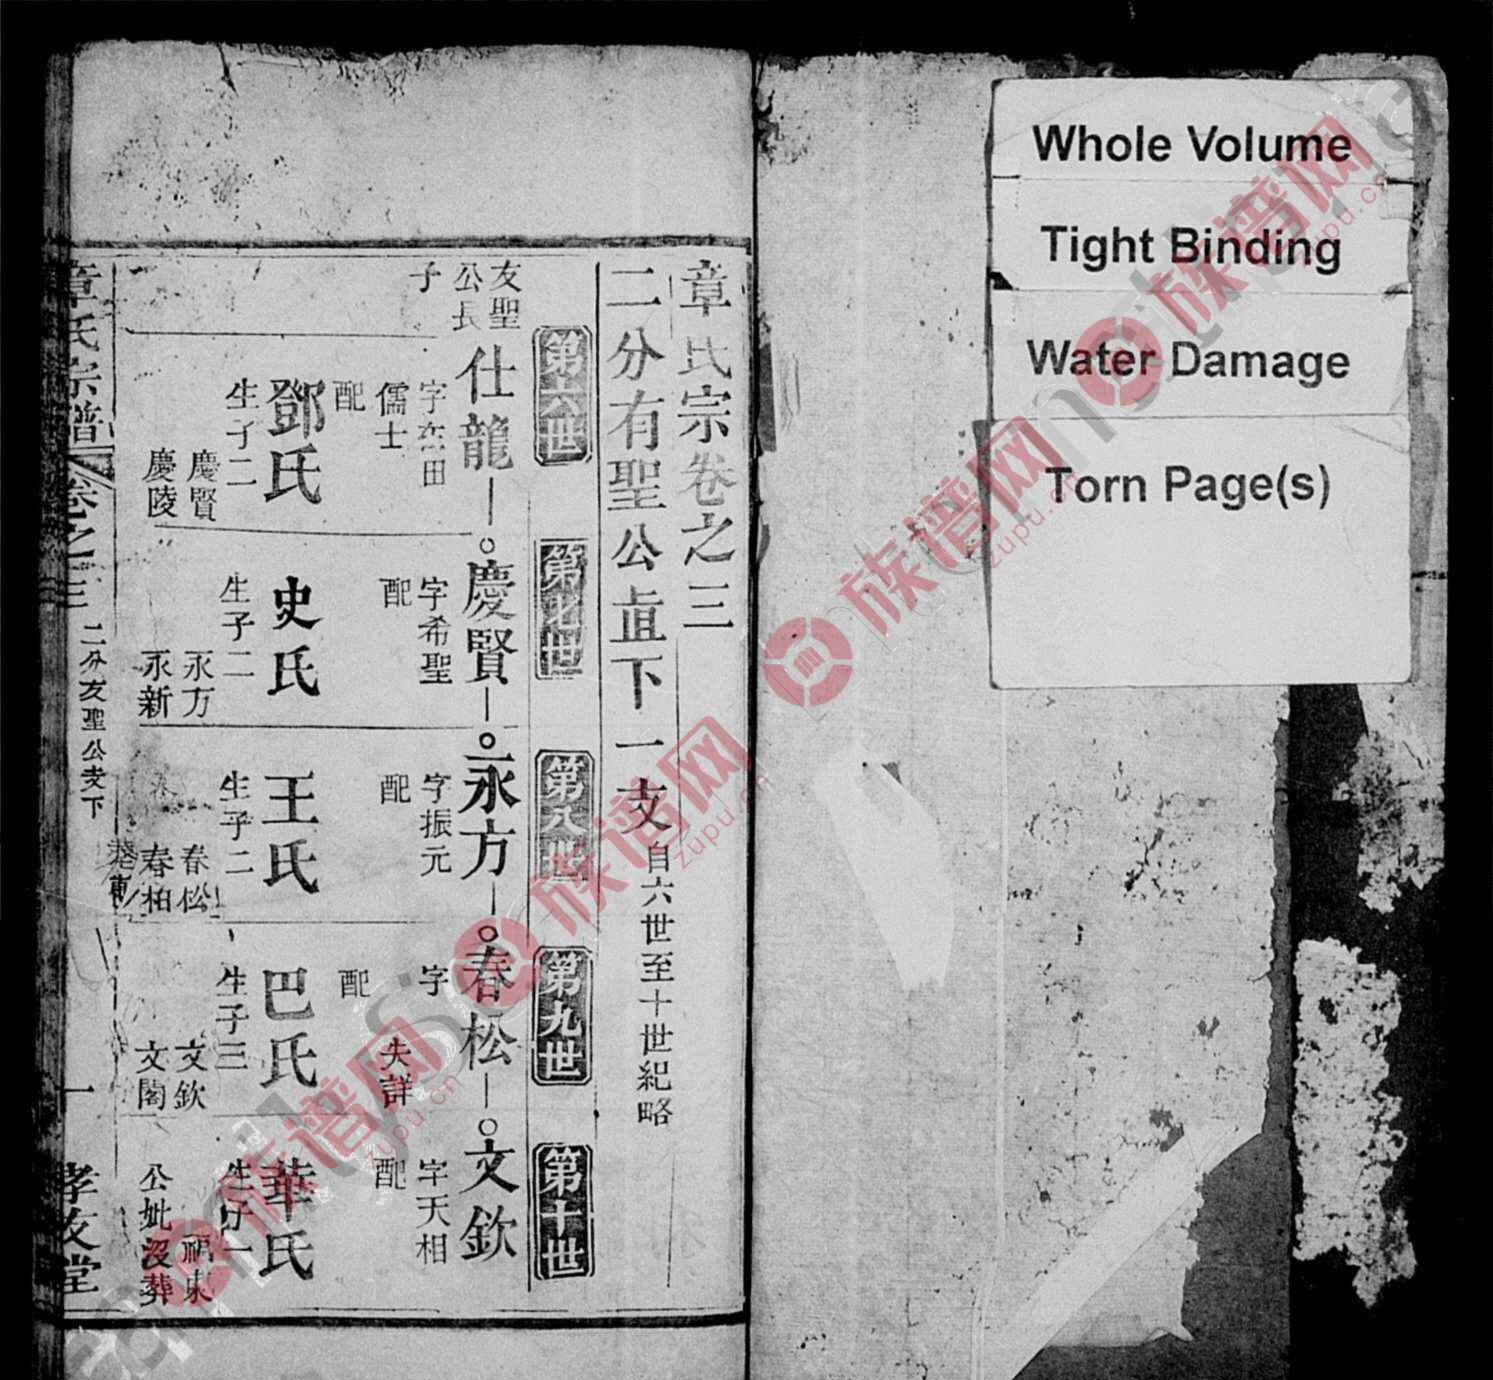 Whole Volume
Tight Binding
Water Damage
Torn Page(s)
章氏宗卷之三
二分有聖公㫖下一支自六世至十世紀略
第六世
第七世
第八世
第九世
第十世
友聖
公長
子
仕龍
字杰田
儒士
配
鄧氏
生子二
慶賢
慶陵
慶賢
字希聖
配
史氏
生子二
永方
永新
永方
字振元
配
王氏
生子二
春松
春柏
春松
字
失詳
配
巴氏
生子三
文欽
文閣
文欽
字天相
配
華氏
生子一
公妣沒葬
章氏宗譜
卷之三
二分友聖公支下
一
孝友堂
族谱网
zupu.cn
族谱网
zupu.cn
族谱网
zupu.cn
族谱网
zupu.cn